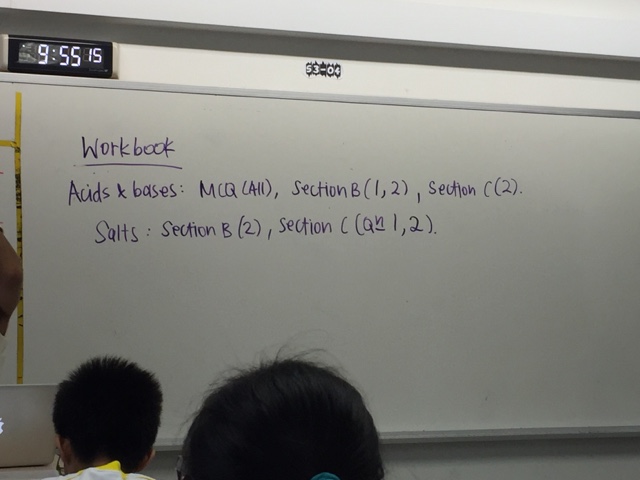 9:55 15
S3-04
Workbook
Acids & bases: MCQ (All), Section B (1,2), Section C (2).
Salts: Section B (2), Section C (Qn 1,2).